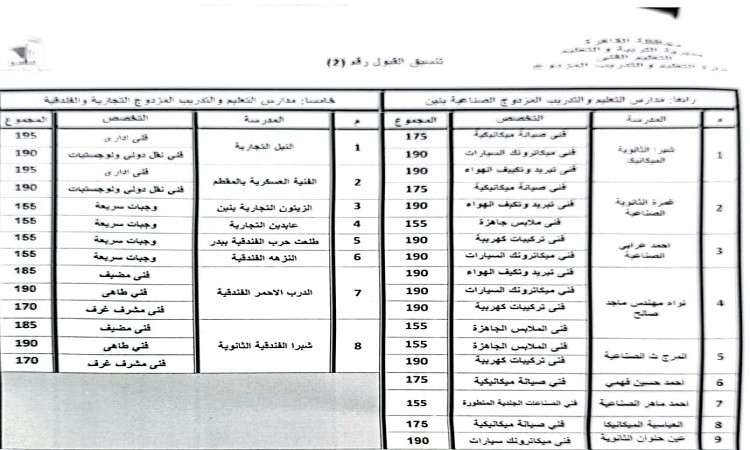 محافظة القاهرة
مديرية التربية والتعليم
التعليم الفنى
إدارة التعليم والتدريب المزدوج
تنسيق القبول رقم (2)
رابعا: مدارس التعليم والتدريب المزدوج الصناعية بنين
م المدرسة التخصص المجموع
1 شبرا الثانوية الميكانيكا فني صيانة ميكانيكية 175
فني ميكاترونك السيارات 190
فني تبريد وتكييف الهواء 190
2 غمرة الثانوية الصناعية فني صيانة ميكانيكية 175
فني تبريد وتكيف الهواء 190
فني ملابس جاهزة 155
3 احمد عرابي الصناعية فني تركيبات كهربية 190
فني ميكاترونك السيارات 190
4 لواء مهندس ماجد صالح فني تبريد وتكيف الهواء 190
فني ميكاترونك السيارات 190
فني تركيبات كهربية 190
فني الملابس الجاهزة 155
5 المرج ث الصناعية فني الملابس الجاهزة 155
فني تركيبات كهربية 190
6 احمد حسين فهمي فني صيانة ميكانيكية 175
7 احمد ماهر الصناعية فني الصناعات الجلدية المتطورة 155
8 العباسية الميكانيكا فني صيانة ميكانيكية 175
9 عين حلوان الثانوية فني ميكاترونك سيارات 190
خامسا: مدارس التعليم والتدريب المزدوج التجارية والفندقية
م المدرسة التخصص المجموع
1 النيل التجارية فني ادارى 195
فني نقل دولي ولوجستيات 190
2 الفنية العسكرية بالمقطم فني ادارى 195
فني نقل دولي ولوجستيات 190
3 الزيتون التجارية بنين وجبات سريعة 155
4 عابدين التجارية وجبات سريعة 155
5 طلعت حرب الفندقية ببدر وجبات سريعة 155
6 النزهه الفندقية وجبات سريعة 155
7 الدرب الاحمر الفندقية فني مضيف 185
فني طاهى 190
فني مشرف غرف 170
8 شبرا الفندقية الثانوية فني مضيف 185
فني طاهى 190
فني مشرف غرف 170